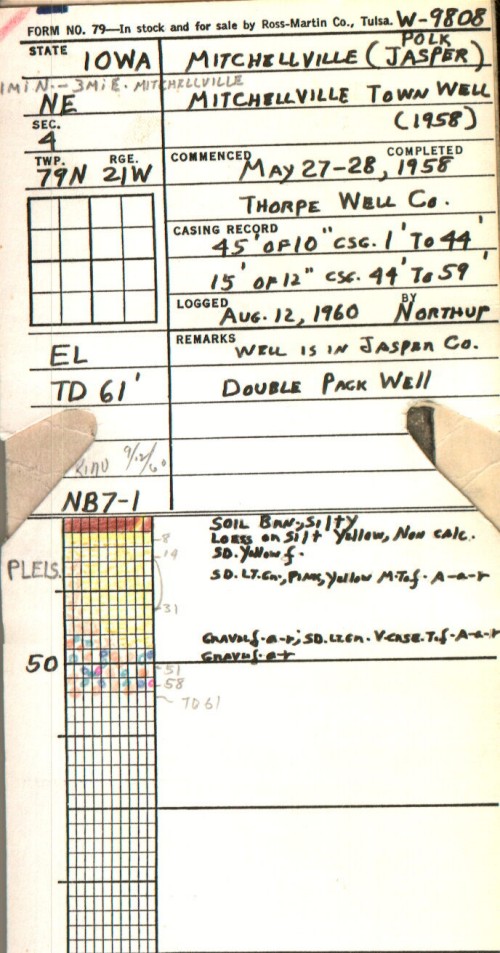 FORM NO. 79—In stock and for sale by Ross-Martin Co., Tulsa. W-9808
STATE IOWA
MITCHELLVILLE (POLK JASPER)
1MIN.-3MIE. MITCHELLVILLE
NE
MITCHELLVILLE TOWN WELL
(1958)
SEC.
4
TWP. RGE.
79N 21W
COMMENCED COMPLETED
MAY 27-28, 1958
THORPE WELL CO.
CASING RECORD
45' OF 10" CSG. 1' TO 44'
15' OF 12" CSG. 44' TO 59'
LOGGED BY
AUG. 12, 1960 NORTHUP
EL
REMARKS WELL IS IN JASPER CO.
TD 61'
DOUBLE PACK WELL
9/12/60
NB7-1
SOIL BRN, SILTY
8 LOESS OR SILT YELLOW, NON CALC.
14 SD. YELLOW f.
PLEIS.
SD. LT. GN., PINK, YELLOW M-TO f. A-a-r
31
GRAVEL f-a-r; SD.
50
GRAVEL f a-r
51
58
TD 61